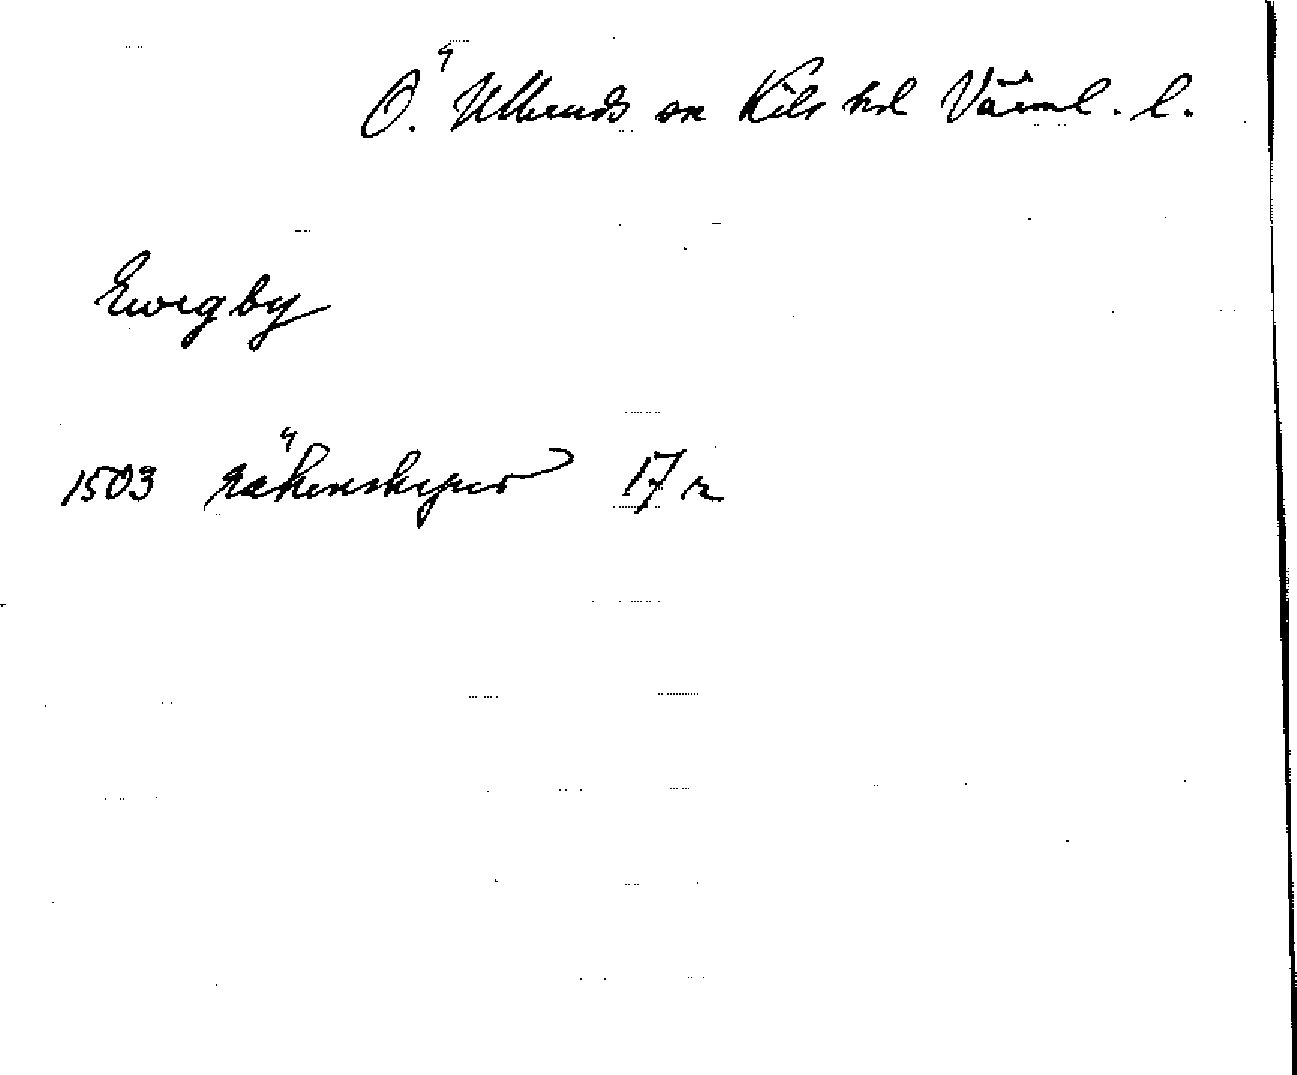 Ö. Ulleruds sn Kils hd Värml. l.
Evergby
1503 räkenskaper 17 r